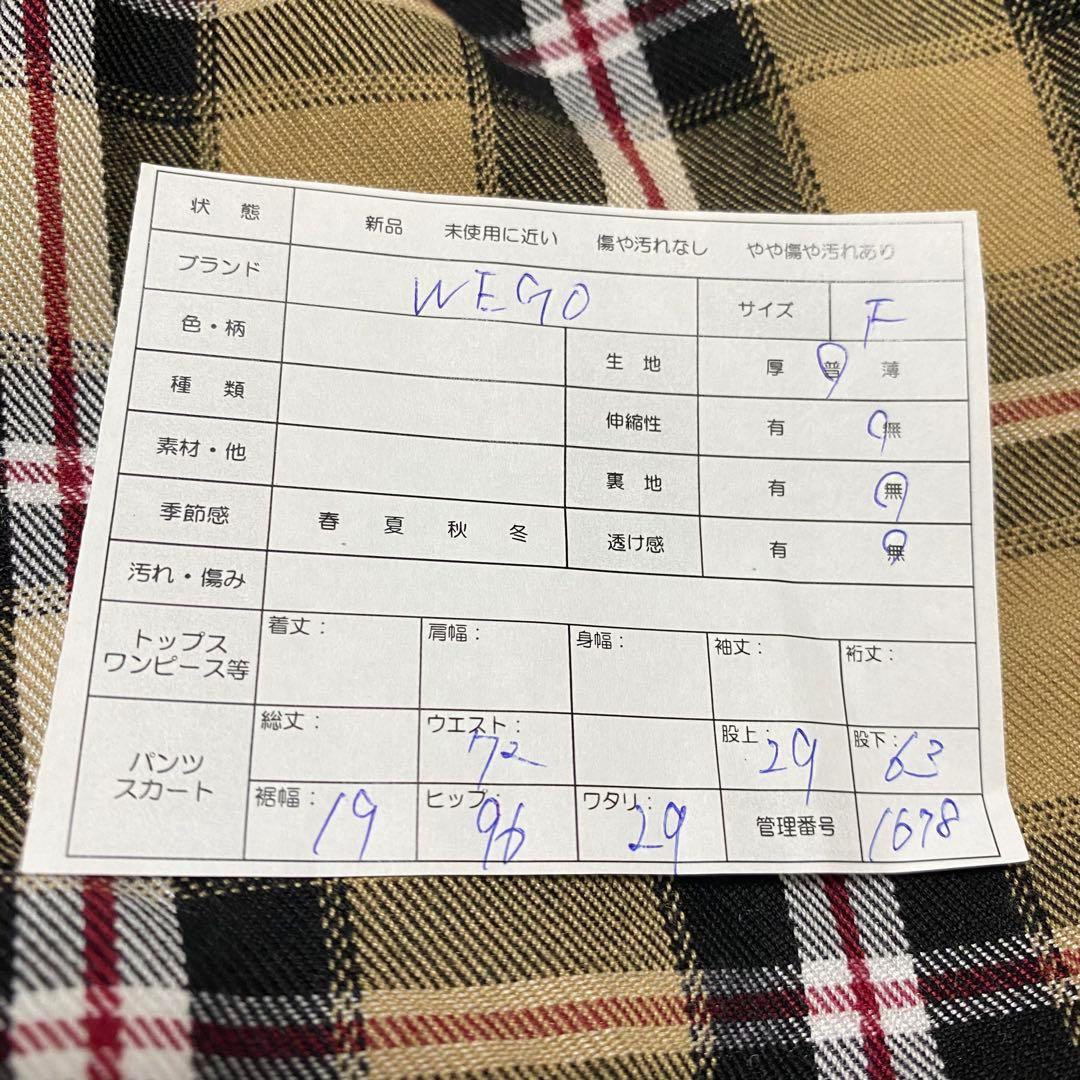 状 態 新品 未使用に近い 傷や汚れなし やや傷や汚れあり
ブランド WEGO サイズ F
色・柄 生 地 厚 普 薄
種 類 伸縮性 有 無
素材・他 裏 地 有 無
季節感 春 夏 秋 冬 透け感 有 無
汚れ・傷み
トップス
ワンピース等 着丈: 肩幅: 身幅: 袖丈: 裄丈:
パンツ
スカート 総丈: ウエスト: 72 股上: 29 股下: 63
裾幅: 19 ヒップ: 96 ワタリ: 29 管理番号 1678